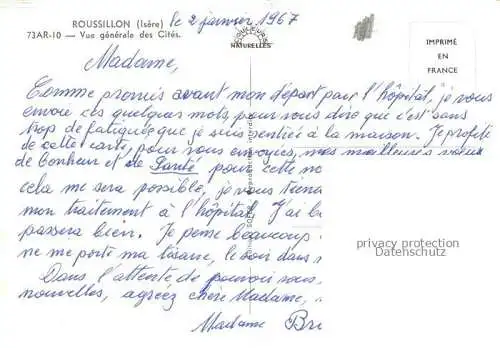 ROUSSILLON (Isère)
73AR-10 — Vue générale des Cités.
le 2 janvier 1967
COULEURS NATURELLES
IMPRIMÉ
EN
FRANCE
Madame,
Comme promis avant mon départ pour l'hôpital, je vous
envoie ces quelques mots pour vous dire que c'est sans
trop de fatigue que je suis rentrée à la maison. Je profite
de cette carte, pour vous envoyer, mes meilleurs vœux
de bonheur et de Santé pour cette
cela me sera possible, je vous
mon traitement à l'hôpital. J'ai
passera bien. Je pense beaucoup
ne me porte ma tisane, le soir dans
Dans l'attente de pouvoir vous
nouvelles, agréez chère Madame,
Madame Bri
privacy protection
Datenschutz